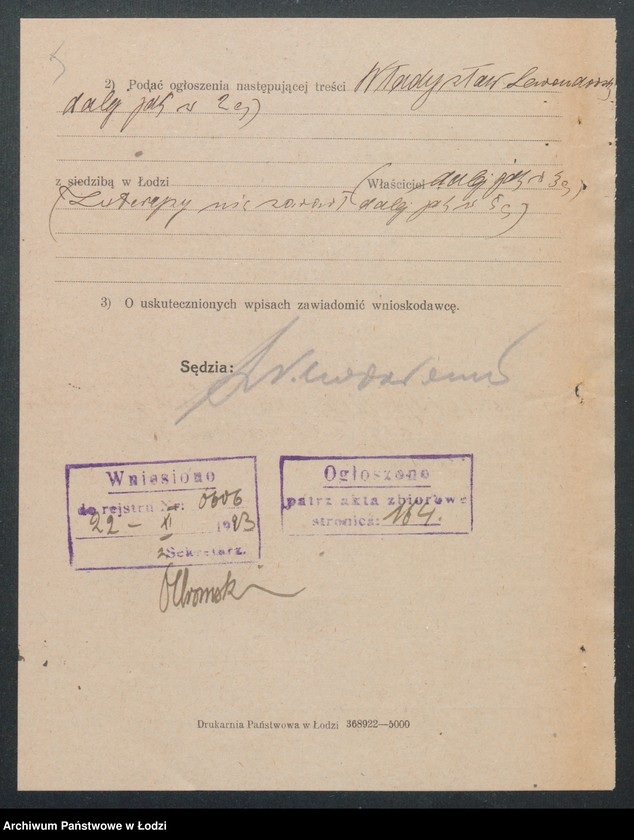 2) Podać ogłoszenia następującej treści Władysław Lewandowski
dalej jak w 2 a)
z siedzibą w Łodzi (Właściciel dalej jak w 3 a)
(Intercyzy nie zawarł dalej jak w 5 a)
3) O uskutecznionych wpisach zawiadomić wnioskodawcę.
Sędzia:
Wniesiono
do rejstru Nr: 0606
22 - XI 1923
Sekretarz.
Ogłoszono
patrz akta zbiorowe
stronica: 164.
Drukarnia Państwowa w Łodzi 368922—5000
Archiwum Państwowe w Łodzi